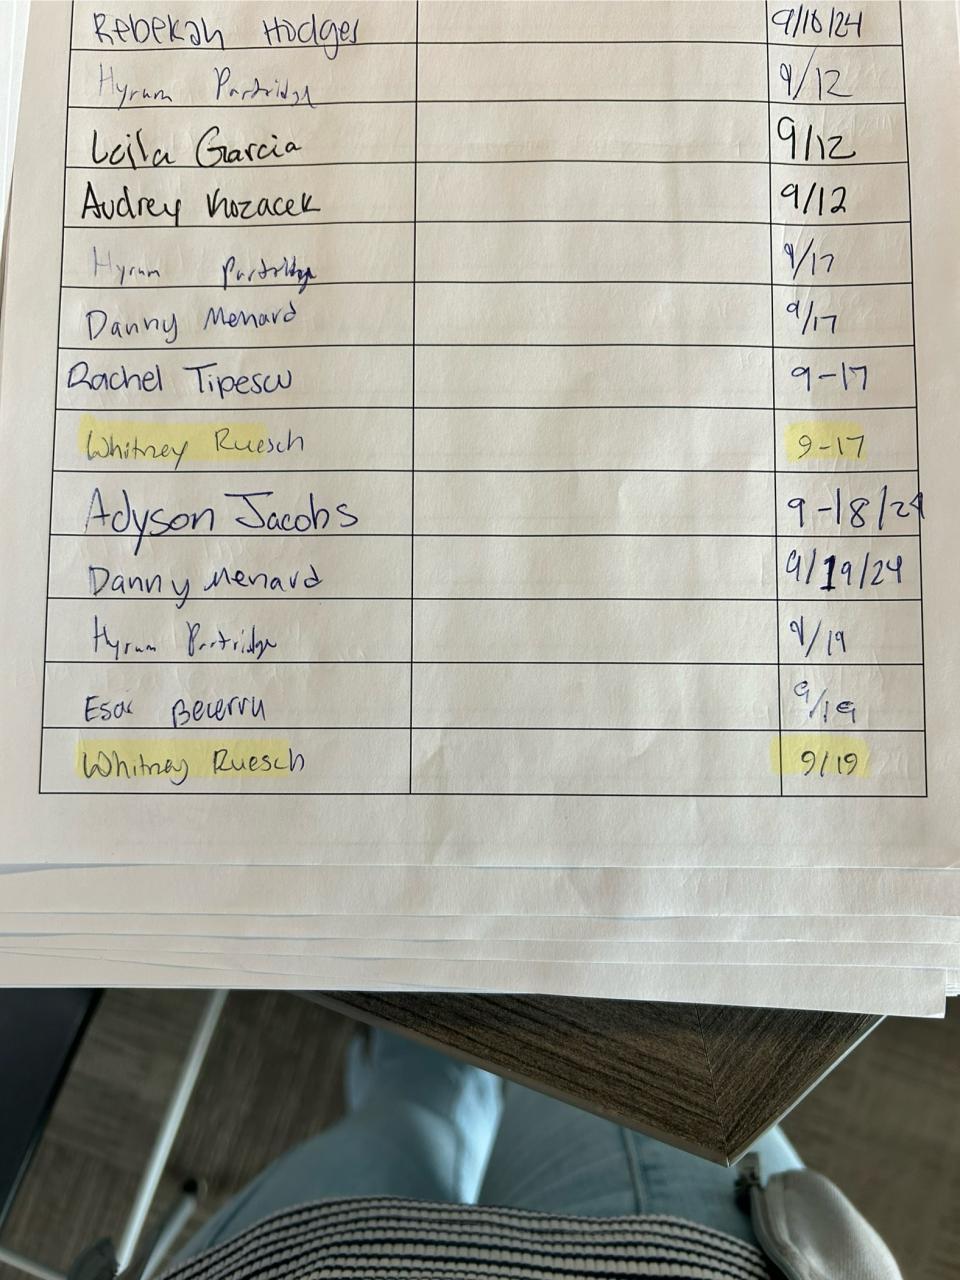 Rebekah Hodges 9/10/24
Hyrum Partridge 9/12
Leila Garcia 9/12
Audrey Kozacek 9/12
Hyrum Partridge 9/17
Danny Menard 9/17
Rachel Tipescu 9-17
Whitney Ruesch 9-17
Adyson Jacobs 9-18/24
Danny Menard 9/19/24
Hyrum Partridge 9/19
Esai Becerra 9/19
Whitney Ruesch 9/19